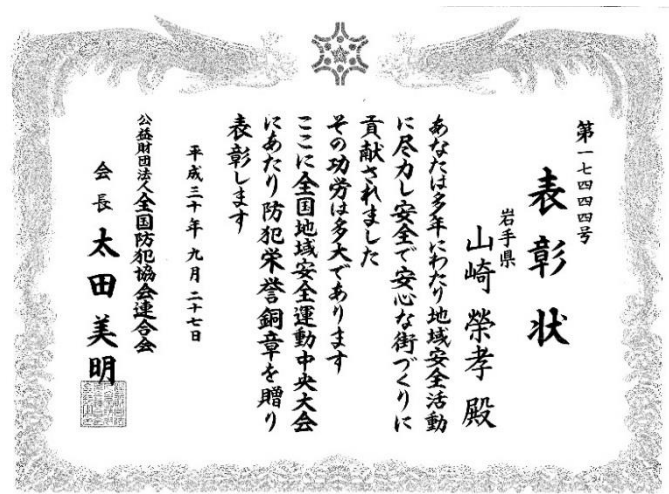 第一七四四四号
表彰状
岩手県
山崎榮孝殿
あなたは多年にわたり地域安全活動
に尽力し安全で安心な街づくりに
貢献されました
その功労は多大であります
ここに全国地域安全運動中央大会
にあたり防犯栄誉銅章を贈り
表彰します
平成三十年九月二十七日
公益財団法人全国防犯協会連合会
会長太田美明